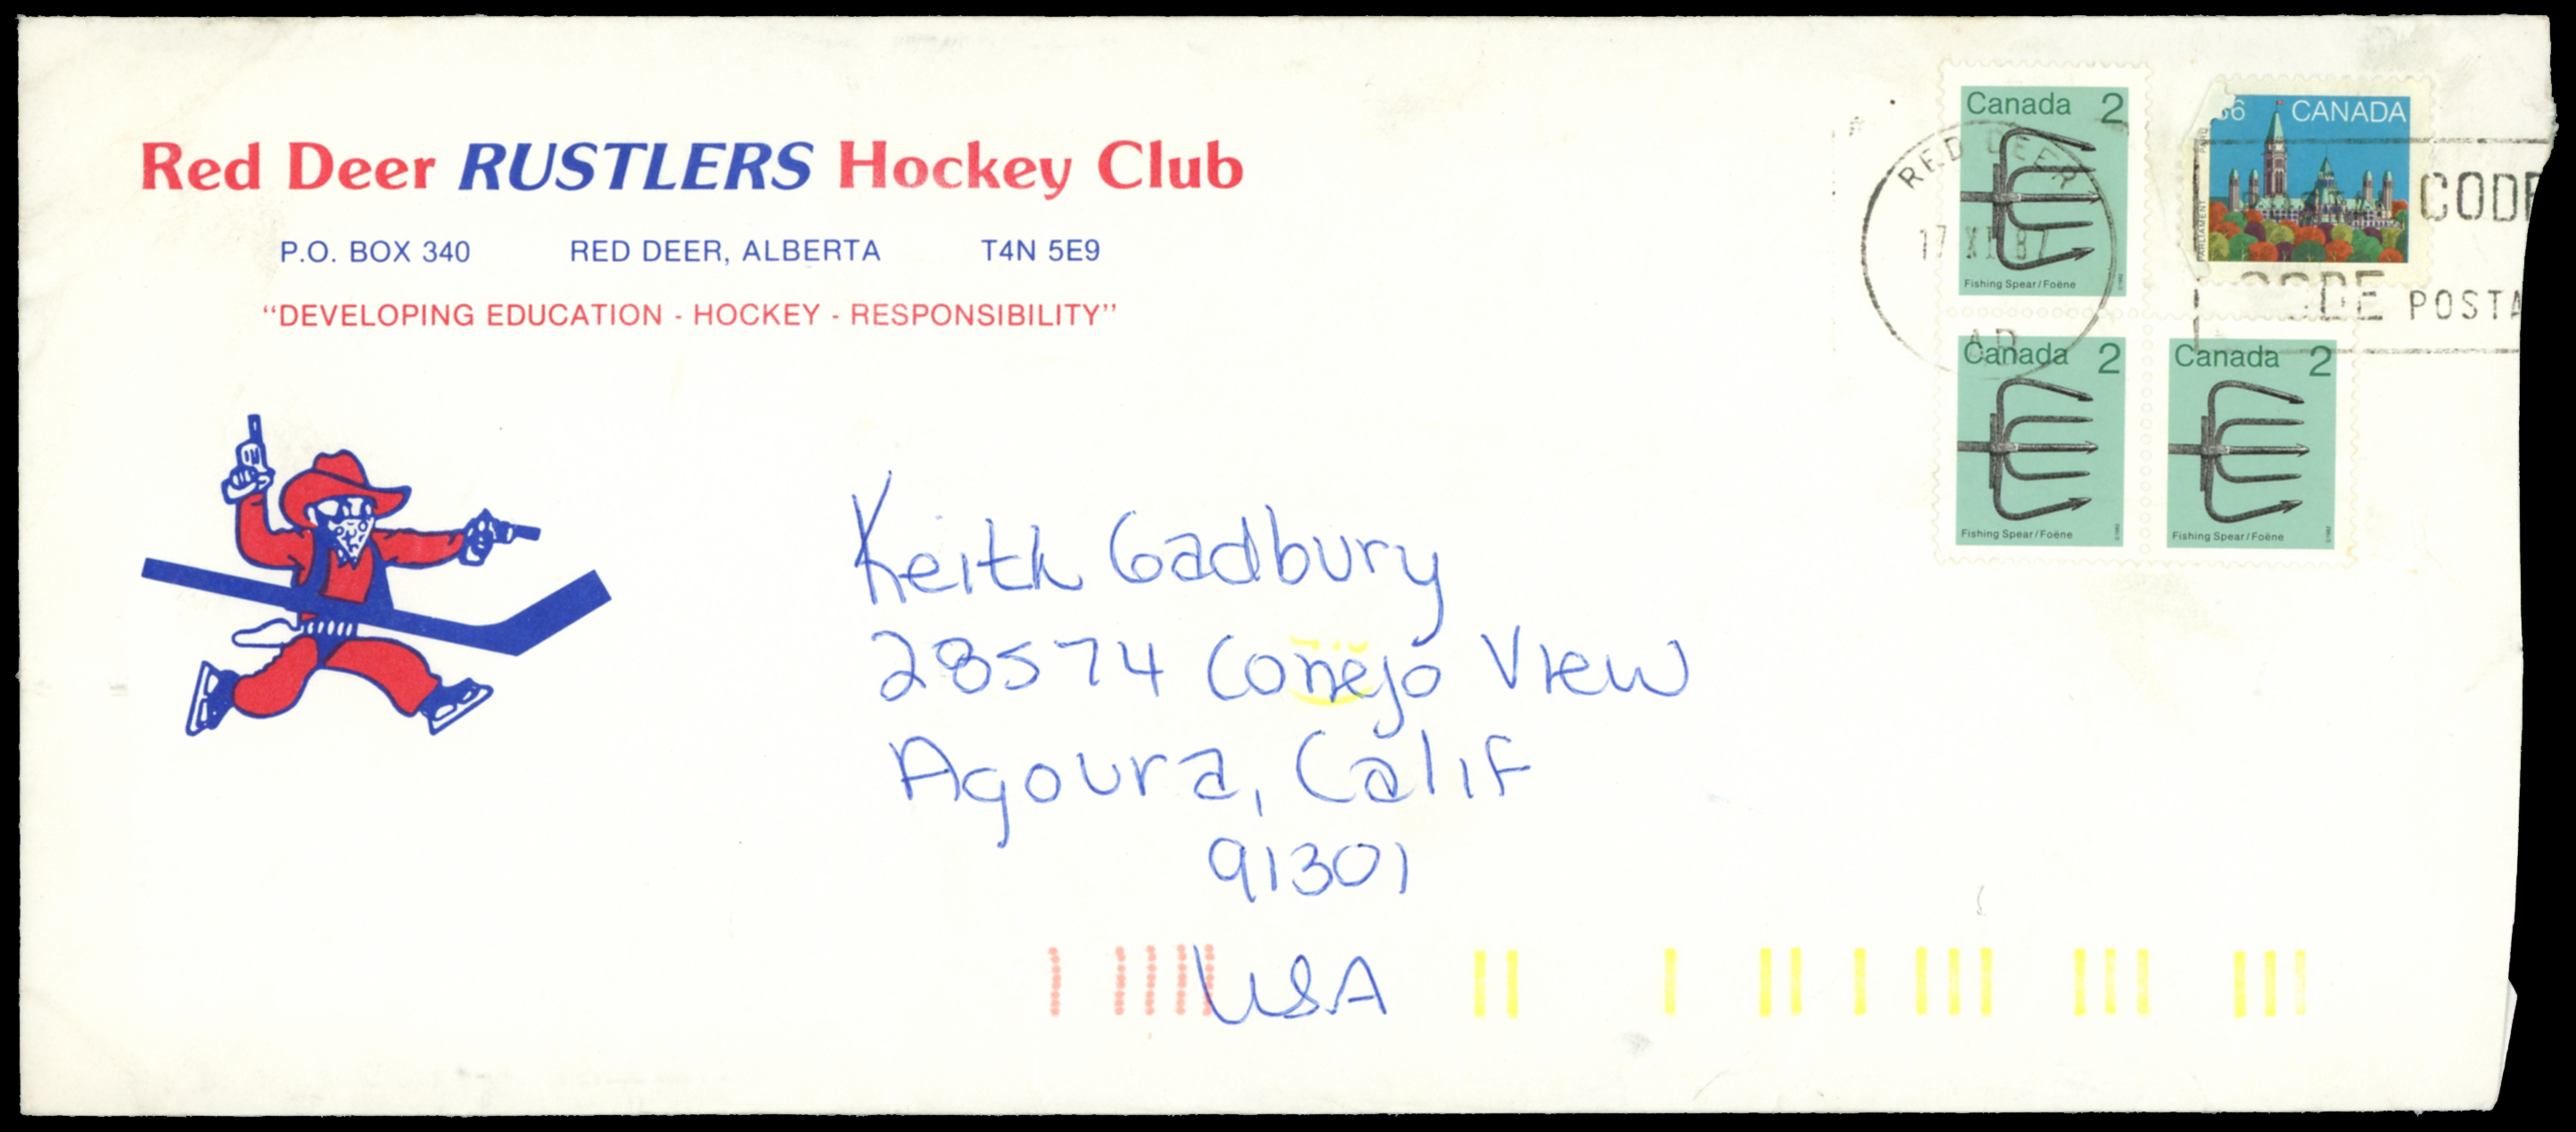 Red Deer RUSTLERS Hockey Club
P.O. BOX 340 RED DEER, ALBERTA T4N 5E9
“DEVELOPING EDUCATION - HOCKEY - RESPONSIBILITY”
Canada 2
Fishing Spear / Foëne
CANADA
PARLIAMENT
RED DEER
17 XI 87
AB
CODE
CODE POSTA
Canada 2
Fishing Spear / Foëne
Canada 2
Fishing Spear / Foëne
Keith Gadbury
28574 Conejo View
Agoura, Calif
91301
USA